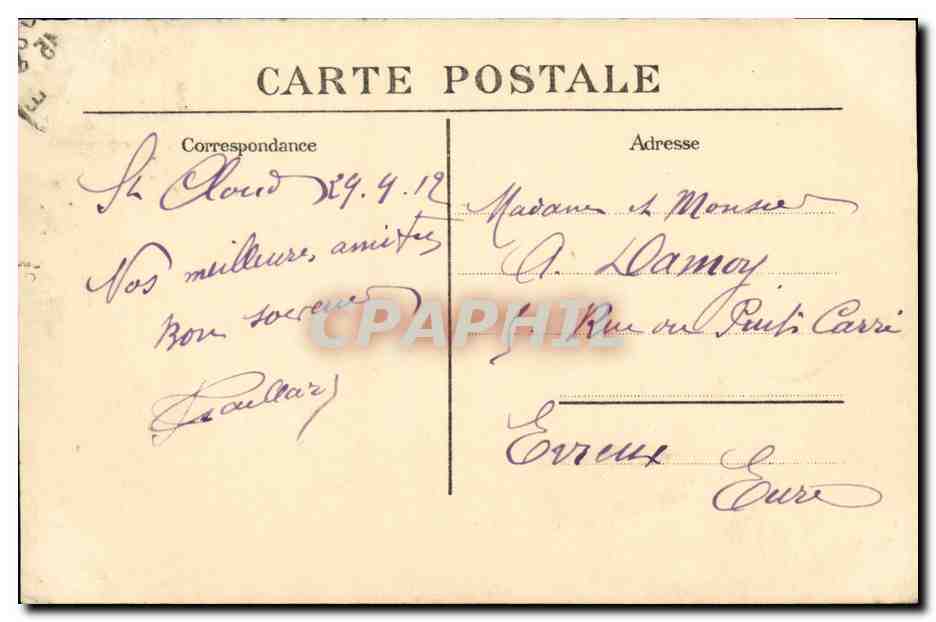 CARTE POSTALE
Correspondance
St Cloud 29.9.12
Nos meilleures amitiés
Bon souvenir
Adresse
Madame et Monsieur
A. Damoy
5 Rue du Puits Carré
Evreux
Eure
CPAPHIL